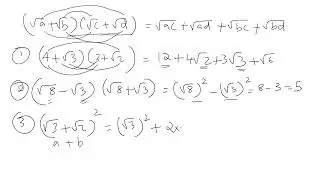 (√a+√b)(√c+√d) = √ac+√ad+√bc+√bd
① (4+√3)(3+√2) = 12+4√2+3√3+√6
② (√8-√3)(√8+√3) = (√8)²-(√3)² = 8-3 = 5
③ (√3+√2)² = (√3)² + 2x
a + b